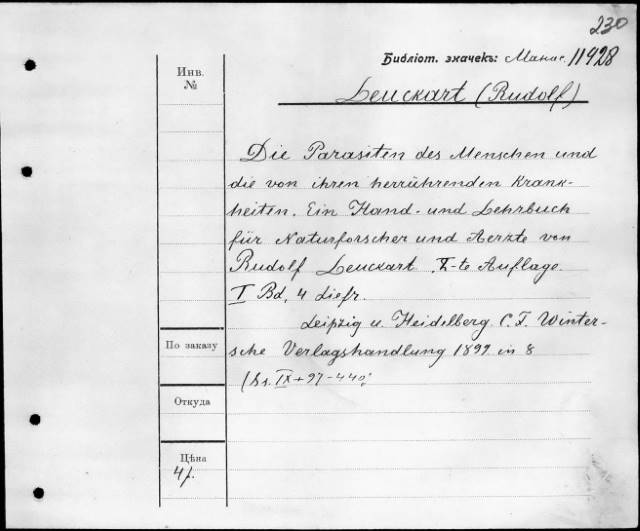 230
Инв.
№
Библіот. значекъ: Манас. 11928
Leuckart (Rudolf)
Die Parasiten des Menschen und
die von ihren herrührenden Krank-
heiten. Ein Hand- und Lehrbuch
für Naturforscher und Aerzte von
Rudolf Leuckart. II-te Auflage.
I Bd, 4 Liefr.
Leipzig u. Heidelberg. C. F. Winter-
sche Verlagshandlung 1899 in 8
(Ss. IX+97-440
По заказу
Откуда
Цѣна
4р.